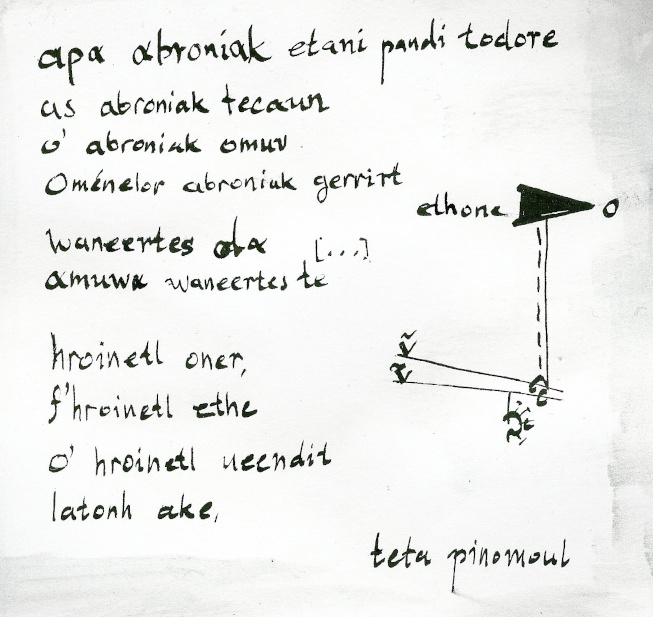 apa abroniak etani pandi todore
as abroniak tecaun
o' abroniak omuv
Oménelor abroniak gerrirt
ethone o
waneertes ola [...]
amuwa waneertes te
hroinetl oner,
f'hroinetl ethe
o' hroinetl ueendit
latonh ake,
teta pinomoul